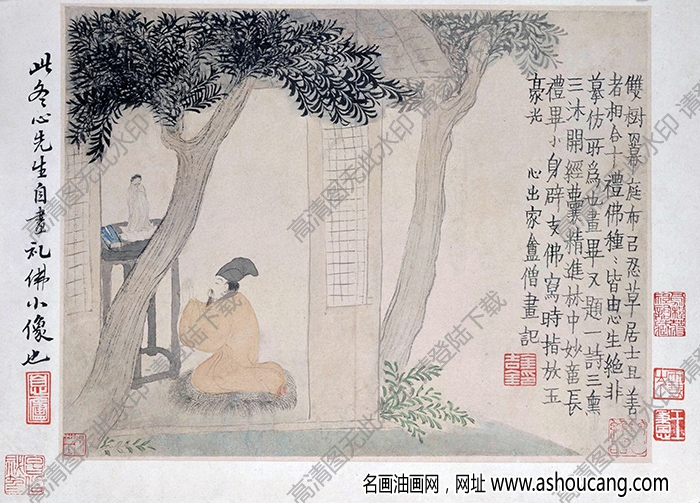 雙樹冪庭布召忍草居士且善
者相合十禮佛種〻皆由心生絶非
摹仿所爲也畫畢又題一詩三熏
三沐開經囊精進林中妙蓄長
禮畢小身辟支佛寫時指放玉
豪光 心出家盦僧畫記
此冬心先生自畫礼佛小像也
高清图无此水印 请登陆下载
名画油画网，网址 www.ashoucang.com